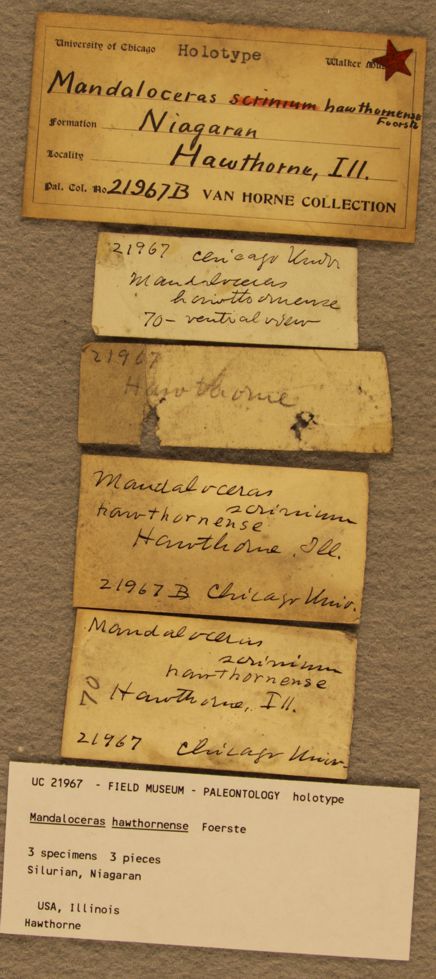 University of Chicago Holotype Walker
Mandaloceras scrinium hawthornense
Foerste
Formation Niagaran
Locality Hawthorne, Ill.
Pal. Col. No 21967B VAN HORNE COLLECTION
21967 Chicago Univ
Mandaloceras
hawthornense
70- ventral view
21967
Hawthorne
Mandaloceras
scrinium
hawthornense
Hawthorne, Ill.
21967 B Chicago Univ.
Mandaloceras
scrinium
hawthornense
70 Hawthorne, Ill.
21967 Chicago Univ.
UC 21967 - FIELD MUSEUM - PALEONTOLOGY holotype
Mandaloceras hawthornense Foerste
3 specimens 3 pieces
Silurian, Niagaran
USA, Illinois
Hawthorne